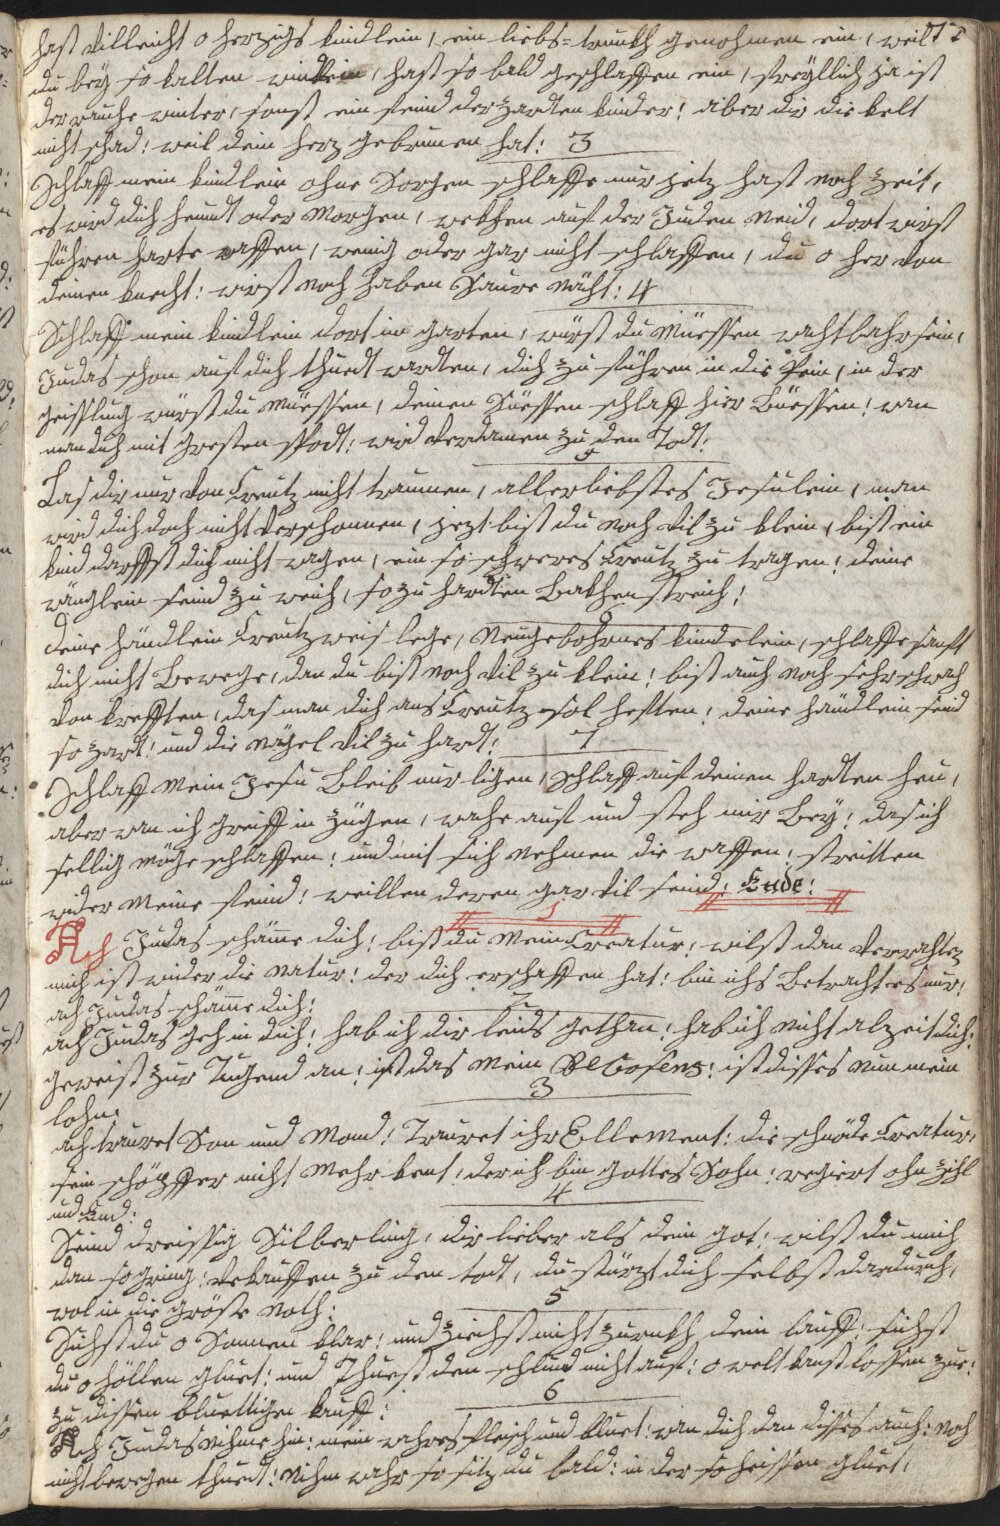 hast villeicht o herzigs kindlein, ein liebs=trunkh genohmen ein, weil
du bey so kalten windlein, hast so bald geschlaffen ein, freyllich ja ist
der rauche winter, sonst ein feind der zardten kinder! aber dir die kelt
nicht schad: weil dein herz gebrunen hat: 3
Schlaff mein kindlein ohne Sorgen schlaffe nur jetz hast noch zeit,
es wird dich heundt oder Morgen, wekhen auf der Juden Neid, dort wirst
führen harte waffen, wenig oder gar nicht schlaffen, du o her von
deinen knecht: wirst noch haben Saure Nächt: 4
Schlaff mein kindlein dort im garten, würst du Müessen wachtbahr sein,
Judas schon auf dich thuedt wardten, dich zu führen in die Pein, in der
geisslung würst du Müessen, deinen Süessen schlaff hier Büessen! wan
man dich mit gresten spodt: wird verdamen zu den Todt:
5
Las dir nur von Creutz nicht traumen, allerliebstes Jesulein, man
wird dich doch nicht verschonnen, jezt bist du noch vil zu klein, bist ein
kind darffst dich nicht wagen, ein so schweres Creutz zu tragen! deine
wänglein seind zu weich, so zu hardten Bakhenstreich!
6
deine händlein Creutzweis lege, Neugebohrnes kindelein, schlaffe sanft
dich nicht Bewege, dan du bist noch vil zu klein! bist auch noch sehr schwach
von krefften, das man dich ans Creutz sol heften! deine händlein seind
so zart! und die Nägel vil zu hardt! 7
Schlaff Mein Jesu Bleib nur ligen, Schlaff auf deinen hardten heu,
aber wan ich greiff in zügen, wache auf und steh mir Bey! das ich
sellig möge schlaffen! und mit sich Nehmen die waffen! streitten
wider Meine feind! weillen deren gar vil seind: Ende:
1
Ach Judas schäme dich! bist du Mein Creatur! wilst dan verrahten
mich ist wider die Natur! der dich erschaffen hat! bin ichs Betracht es nur!
ach Judas schäme dich! 2
ach Judas geh in dich! hab ich dir leids gethan! hab ich nicht alzeit dich!
geweist zur Tugend an! ist das Mein! ist disses Nun mein
lohn: 3
ach trauret Son und Mond! Trauret ihr Ellement! die schnöde Creatur,
sein schöpffer nicht Mehr kent! der ich bin gottes Sohn! regiert ohn zihl
und End: 4
Seind dreissig Silberling, dir lieber als dein got, wilst du mich
dan so gring: verkauffen zu den todt, du stürzt dich selbst dardurch,
wol in die gröste Noth: 5
Sichst du o Sonnen klar! und ziechst nicht zurukh dein lauff! sichst
du o höllen gluet! und Thuest den schlund nicht auf! o welt kanst lossen zue:
zu dissen bluettigen kauff: 6
Ach Judas Nihme hin: mein wahres fleisch und bluet: wan dich dan disses auch: Noch
nicht bewegen thuedt: Nihm wahr so sitz du bald: in der so heissen gluet,